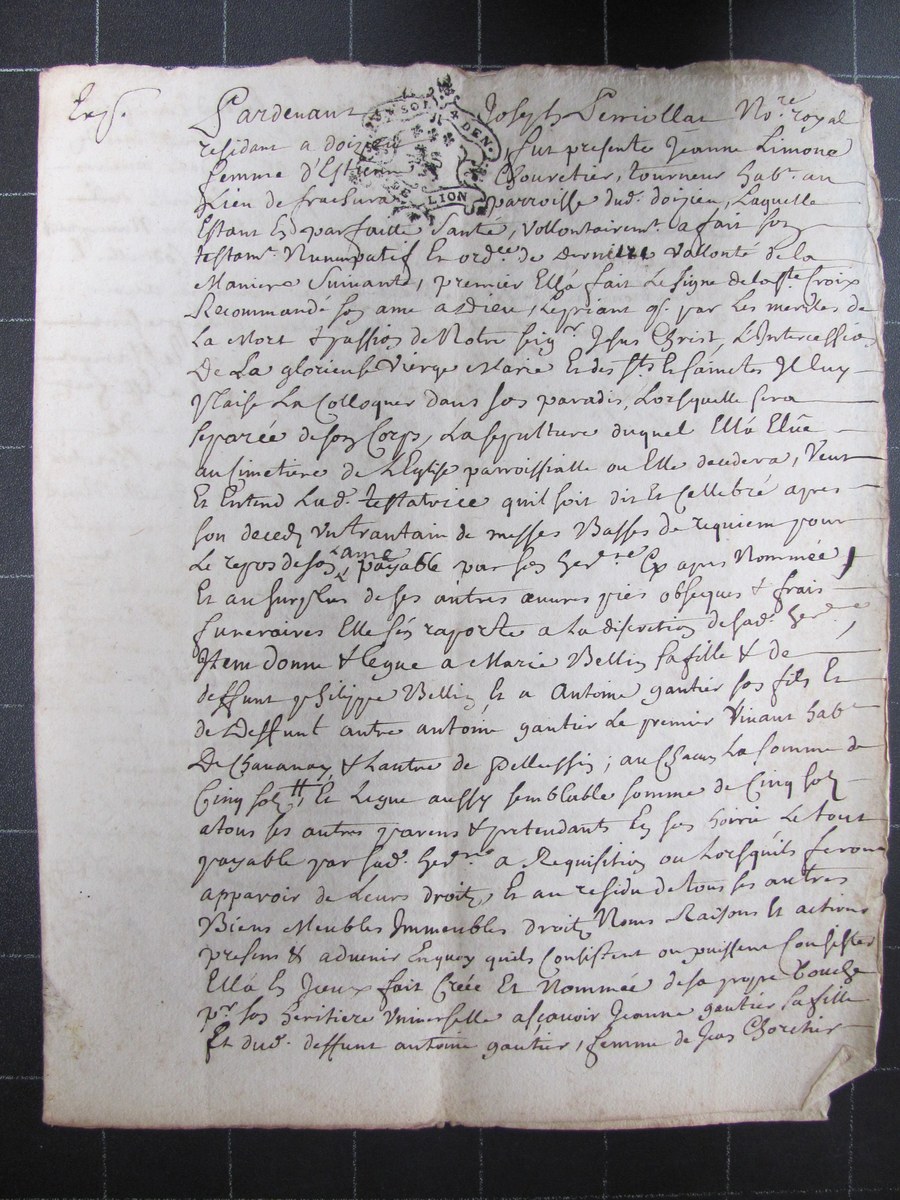 Exp.
Pardevant Joseph Perriollat No.re royal
residant a doizieu, fut presente Jeanne Limone
femme d'Estienne Chouretier, tourneur hab.t au
Lieu de parroisse dud. doizieu, Laquelle
Estant En parfaitte Santé, Vollontairem.t a fait son
testam.t Nuncupatif Et ord.ce de derniere vollonté de la
Maniere Suivante, premier Ell'a fait Le signe de la s.te Croix
Recommandé son ame a dieu, Le priant q. par Les merites de
La Mort & passion de Notre seig.r Jesus Christ, L'Intercession
De La glorieuse Vierge Marie Et des s.ts Et saintes Il luy
Plaise La Colloquer dans son paradis, Lorsquelle sera
separée de son Corps, La sepulture duquel Ell'a Elûe
au simetiere de L'Eglise parroissialle ou Elle decedera, Veut
Et Entend Lad. Testatrice qu'il soit dit Et Cellebré apres
son deced vn trantain de messes Basses de requiem pour
Le repos de son ame payable par son her.re Cy apres Nommée,
Et au surplus de ses autres œuvres pies obseques & frais
funeraires Elle s'en raporte a la discretion de sad. her.re,
Item donne & legue a Marie Bellin sa fille & de
deffunt Philippe Bellin, Et a Antoine gautier son fils Et
de Deffunt autre antoine gautier Le premier Vivant hab.t
De Chavanay & Lautre de Pellussin; au Chacun La somme de
Cinq solz tt, Et Legue aussy semblable somme de Cinq solz
a tous ses autres parens & pretendants En son hoirie Le tout
payable par sad. her.re a Requisition ou Lorsquils feront
apparoir de Leurs droitz, Et au residu de tous ses autres
Biens Meubles Immeubles droitz Noms Raisons Et actions
presens & advenir Enquoy quils Consistent ou puissent Consister
Ell'a En Iceux fait Créée Et Nommée de sa propre bouche
p.r son heritiere Vniverselle asçavoir Jeanne gautier sa fille
Et dud. deffunt antoine gautier, femme de Jean Choretier
LION